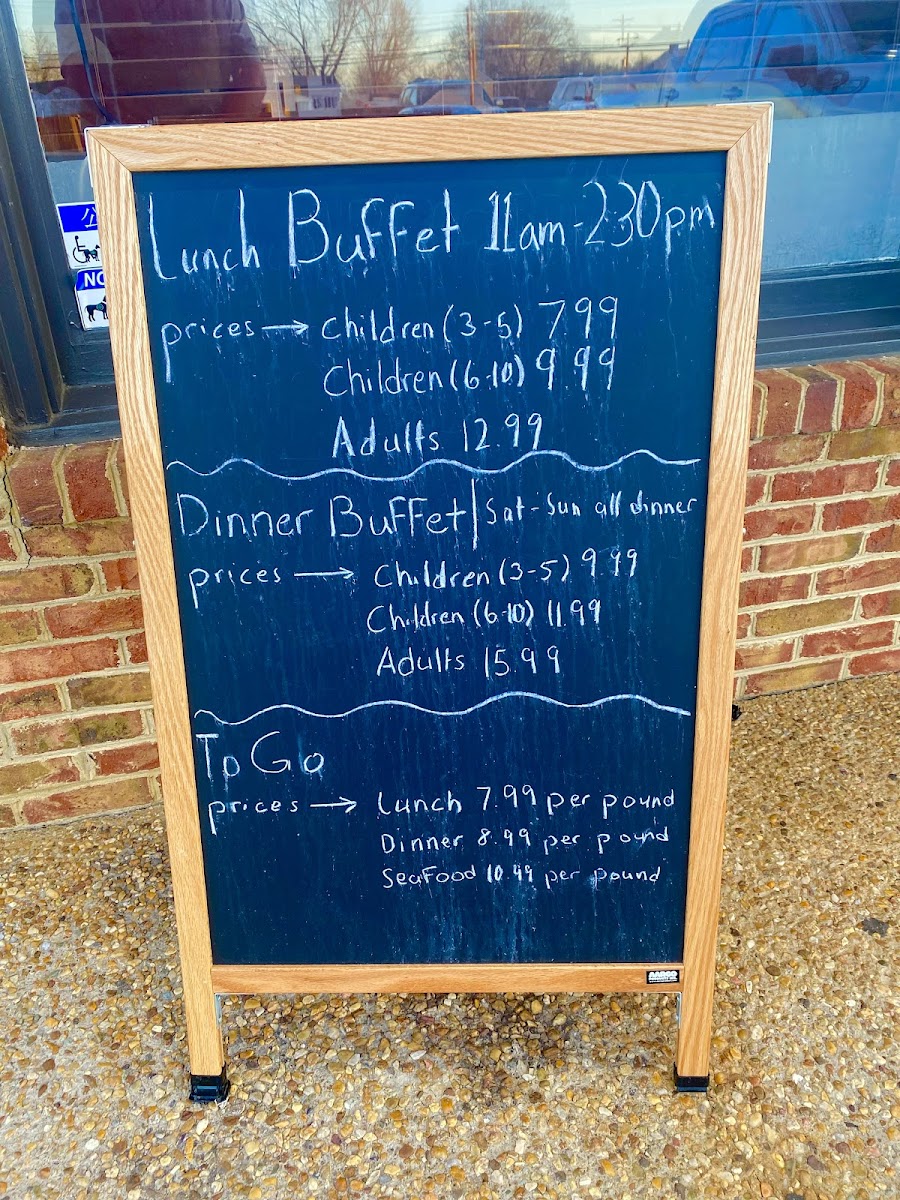 Lunch Buffet 11am-230pm
prices → children (3-5) 7 99
Children (6-10) 9.99
Adults 12.99
Dinner Buffet | Sat-Sun all dinner
prices → Children (3-5) 9.99
Children (6-10) 11.99
Adults 15.99
To Go
prices → Lunch 7.99 per pound
Dinner 8.99 per pound
SeaFood 10.99 per pound
NO
AARCO